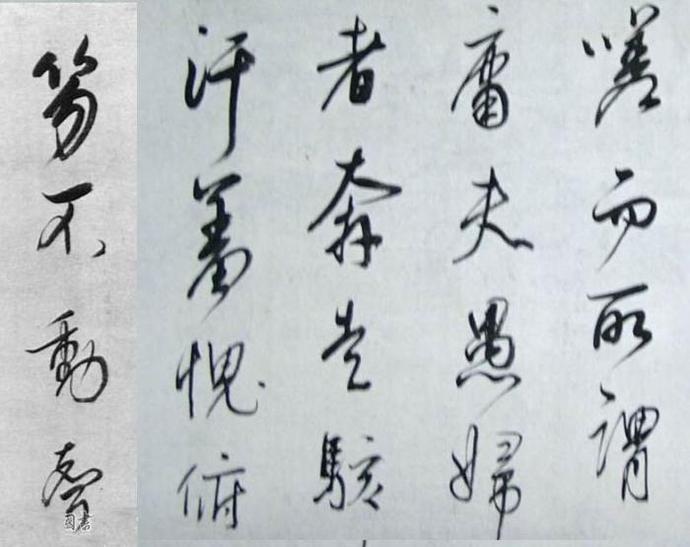 嗟而所謂
庸夫愚婦
者奔走駭
汗羞愧俯
笏不動聲